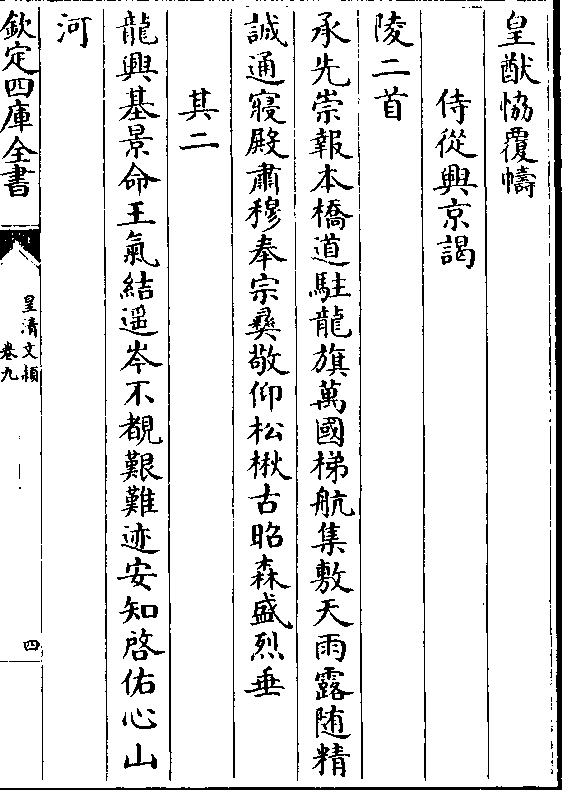 皇猷恊覆幬
侍從興京謁
陵二首
承先崇報本橋道駐龍旗萬國梯航集敷天雨露随精
誠通寢殿肅穆奉宗彜敬仰松楸古昭森盛烈垂
其二
龍興基景命王氣結遥岑不覩艱難迹安知啓佑心山
河
欽定四庫全書
皇清文穎
卷九
四